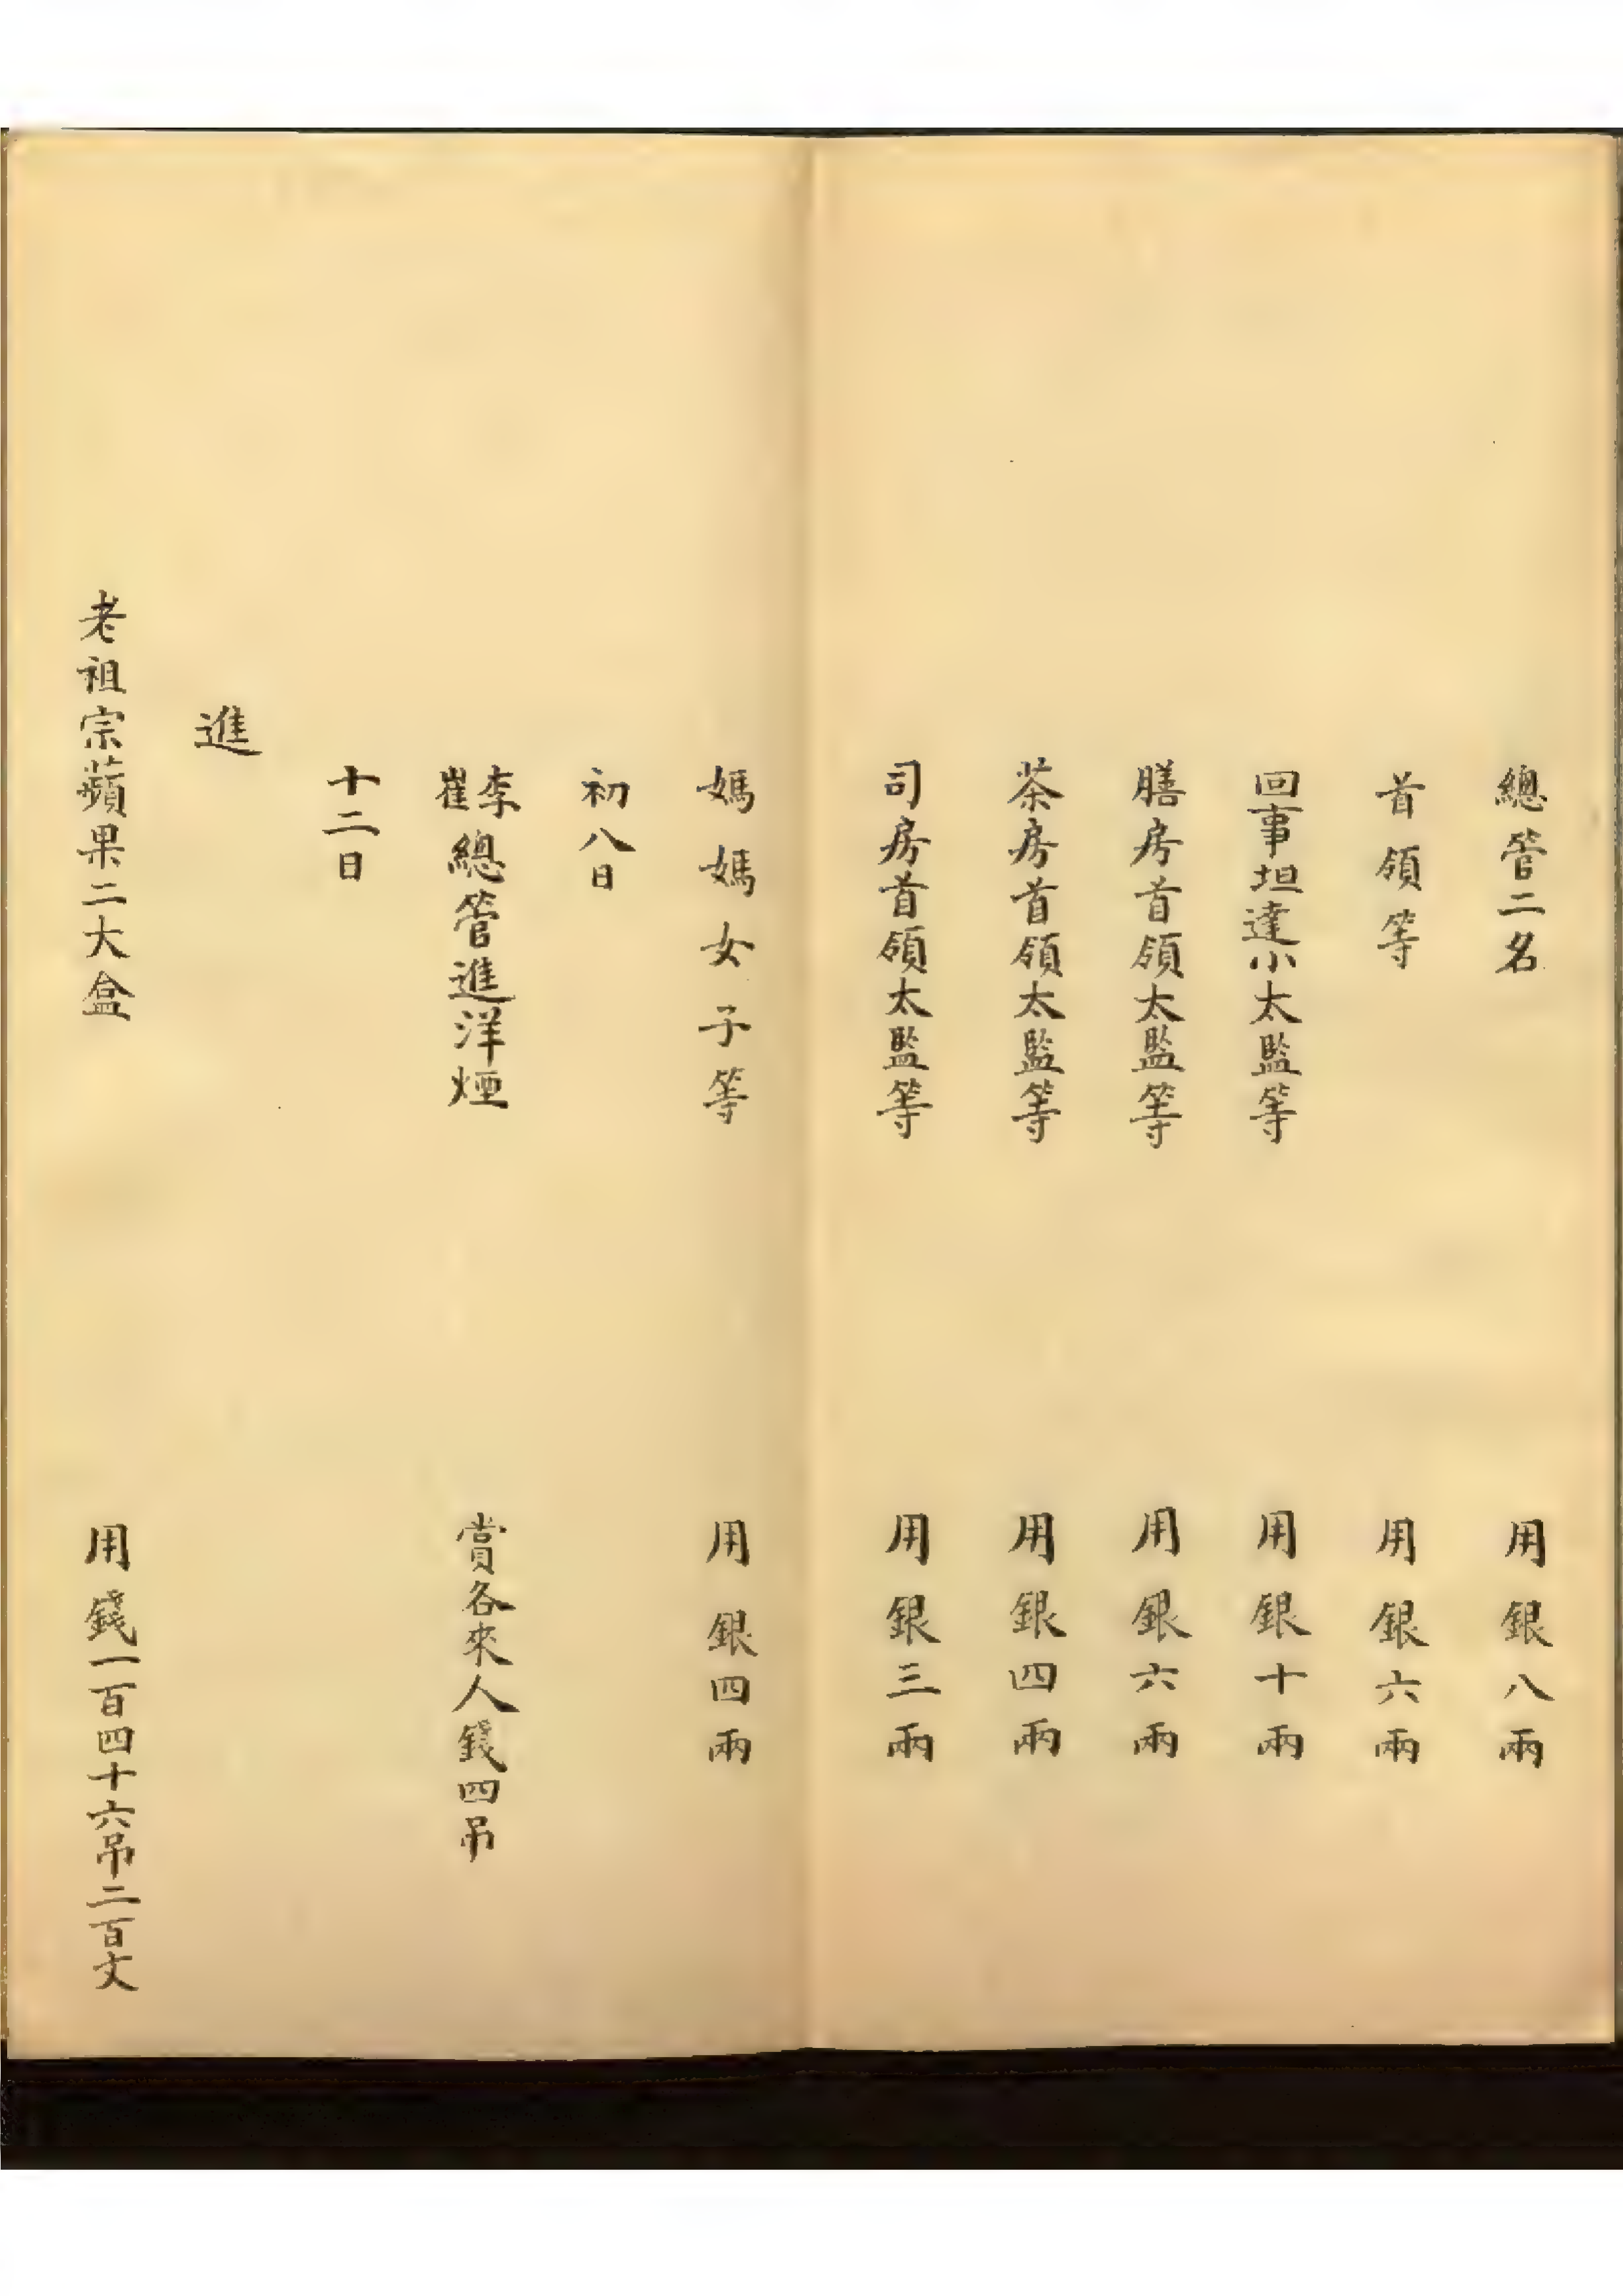 總管二名 用銀八兩
首領等 用銀六兩
回事坦達小太監等 用銀十兩
膳房首領太監等 用銀六兩
茶房首領太監等 用銀四兩
司房首領太監等 用銀三兩
媽媽女子等 用銀四兩
初八日
李崔總管進洋煙 賞各來人錢四吊
十二日
進
老祖宗蘋果二大盒 用錢一百四十六吊二百文